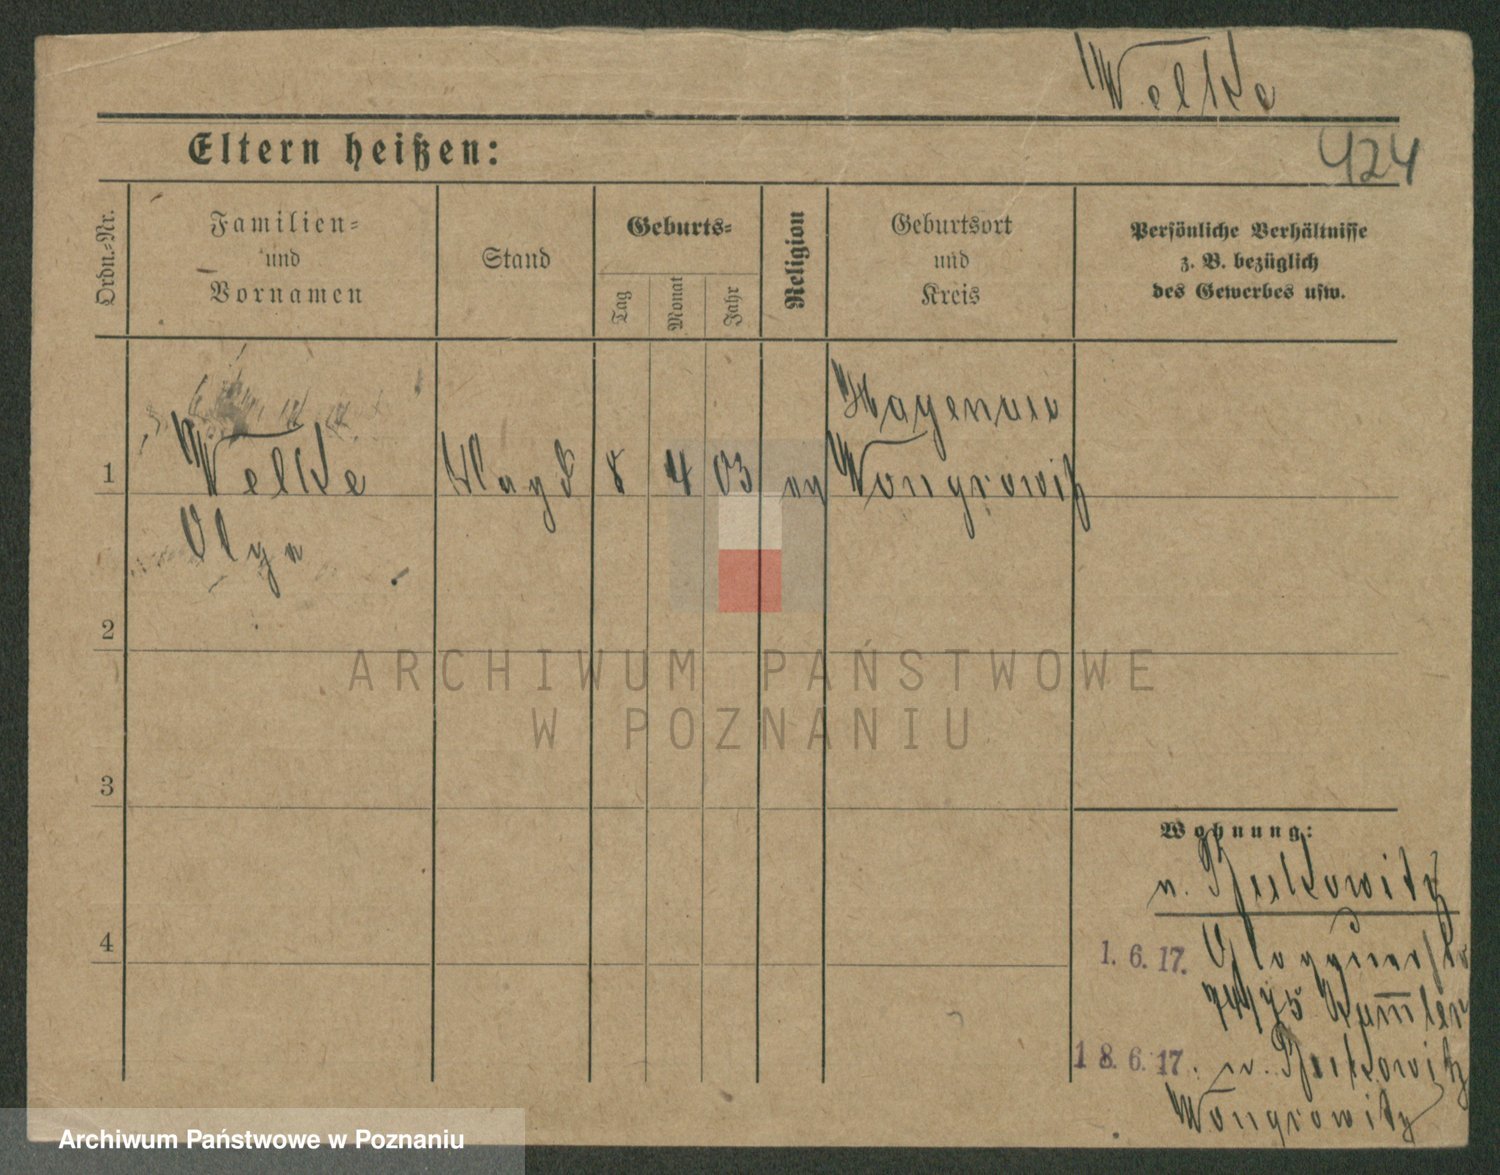 Welke
424
Eltern heißen:
Ordn.-Nr.
Familien-
und
Vornamen
Stand
Geburts-
Tag
Monat
Jahr
Religion
Geburtsort
und
Kreis
Persönliche Verhältnisse
z. B. bezüglich
des Gewerbes usw.
1
Welke
Olga
Magd
8
4
03
ev
Hagenau
Wongrowitz
2
3
4
Wohnung:
n.
1. 6. 17. Glogauerstr
74/75
18. 6. 17. n.
Wongrowitz
ARCHIWUM PAŃSTWOWE
W POZNANIU
Archiwum Państwowe w Poznaniu